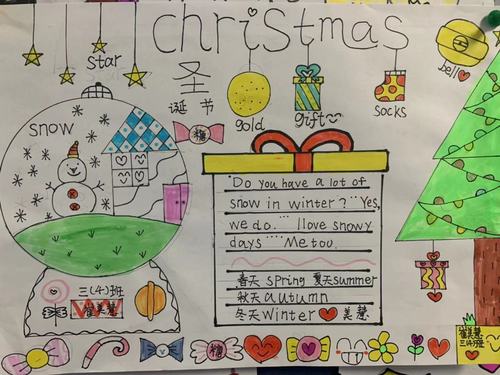 christmas
star
圣
诞 节
gold
gift
socks
bell
snow
糖
Do you have a lot of
snow in winter? Yes,
we do. I love snowy
days Me too.
春天 spring 夏天summer
秋天 autumn
冬天 winter 美慧
三(4)班
崔美慧
糖
崔美慧
三(4)班